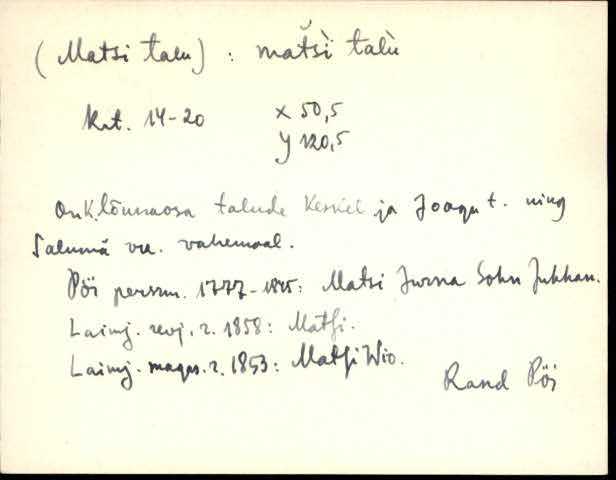 (Matsi talu) : mat̆sì talù
Krt. 14-20 x 50,5
y 120,5
On K. lõunaosa talude Keskel ja Joaqu t. ning
Salumä vu. vahemaal.
Pöi persrm. 1777-1815: Matsi Jurna Sohn Jukkan.
Laimj. revj. r. 1858: Matsi.
Laimj. magas. r. 1853: Matsi Wio.
Rand Pöi